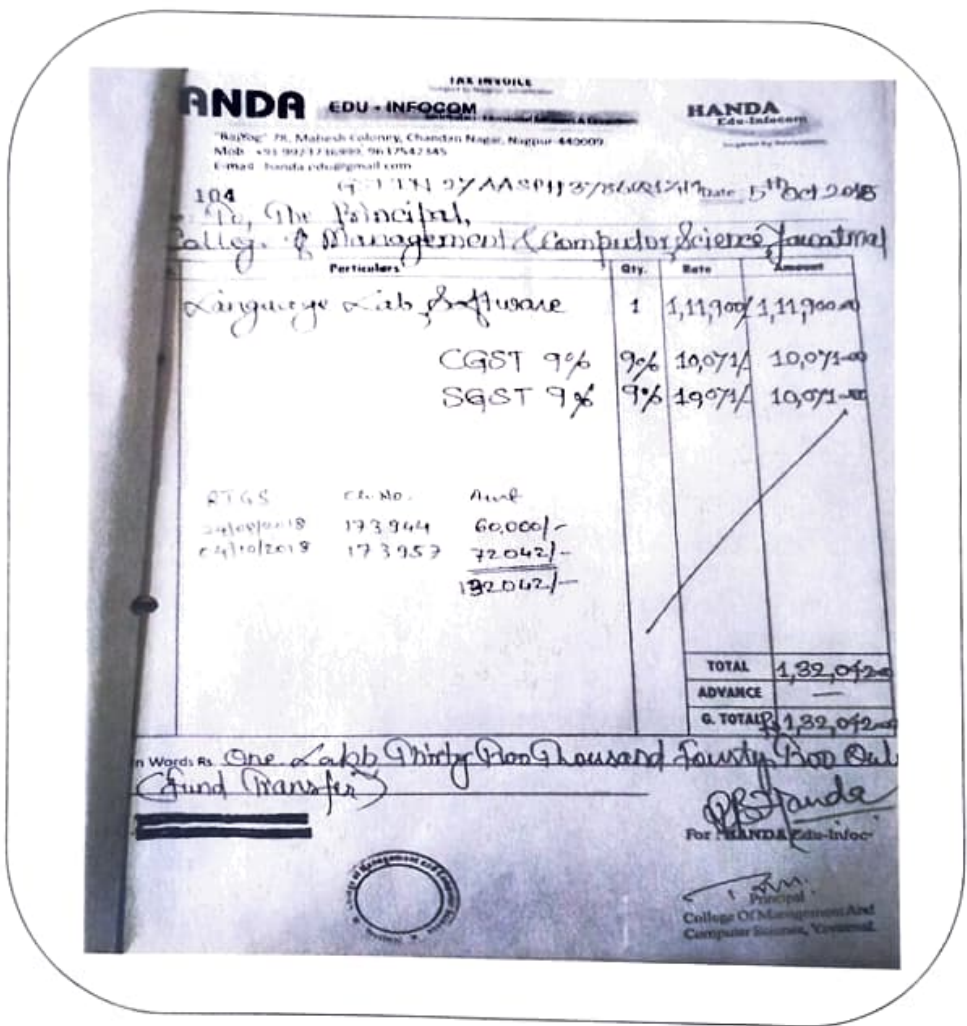 TAX INVOICE
ANDA EDU - INFOCOM
HANDA
Edu-Infocom
"RajYog" 78, Mahesh Coloney, Chandan Nagar, Nagpur-440009
Mob: +91 9923736999, 9637542345
E-mail handa.edu@gmail.com
104
Date 5th Oct 2018
To, The Principal,
Colleg. of Management & Computor, Science, Yavatmal
Particulars Qty. Rate Amount
Language Lab, Software 1 1,11,900/ 1,11,900.00
CGST 9% 9% 10,071/ 10,071-00
SGST 9% 9% 10,071/ 10,071-00
RTGS Ch. No. Amt
173944 60,000/-
04/10/2018 173957 72042/-
132042/-
TOTAL 1,32,042-00
ADVANCE —
G. TOTAL Rs 1,32,042-00
n Words Rs One Lakh Thirty Two Thousand Fourty Two Onl
(Fund Transfer)
For HANDA Edu-Infoc
Principal
College Of Management And
Computer Science, Yavatmal.